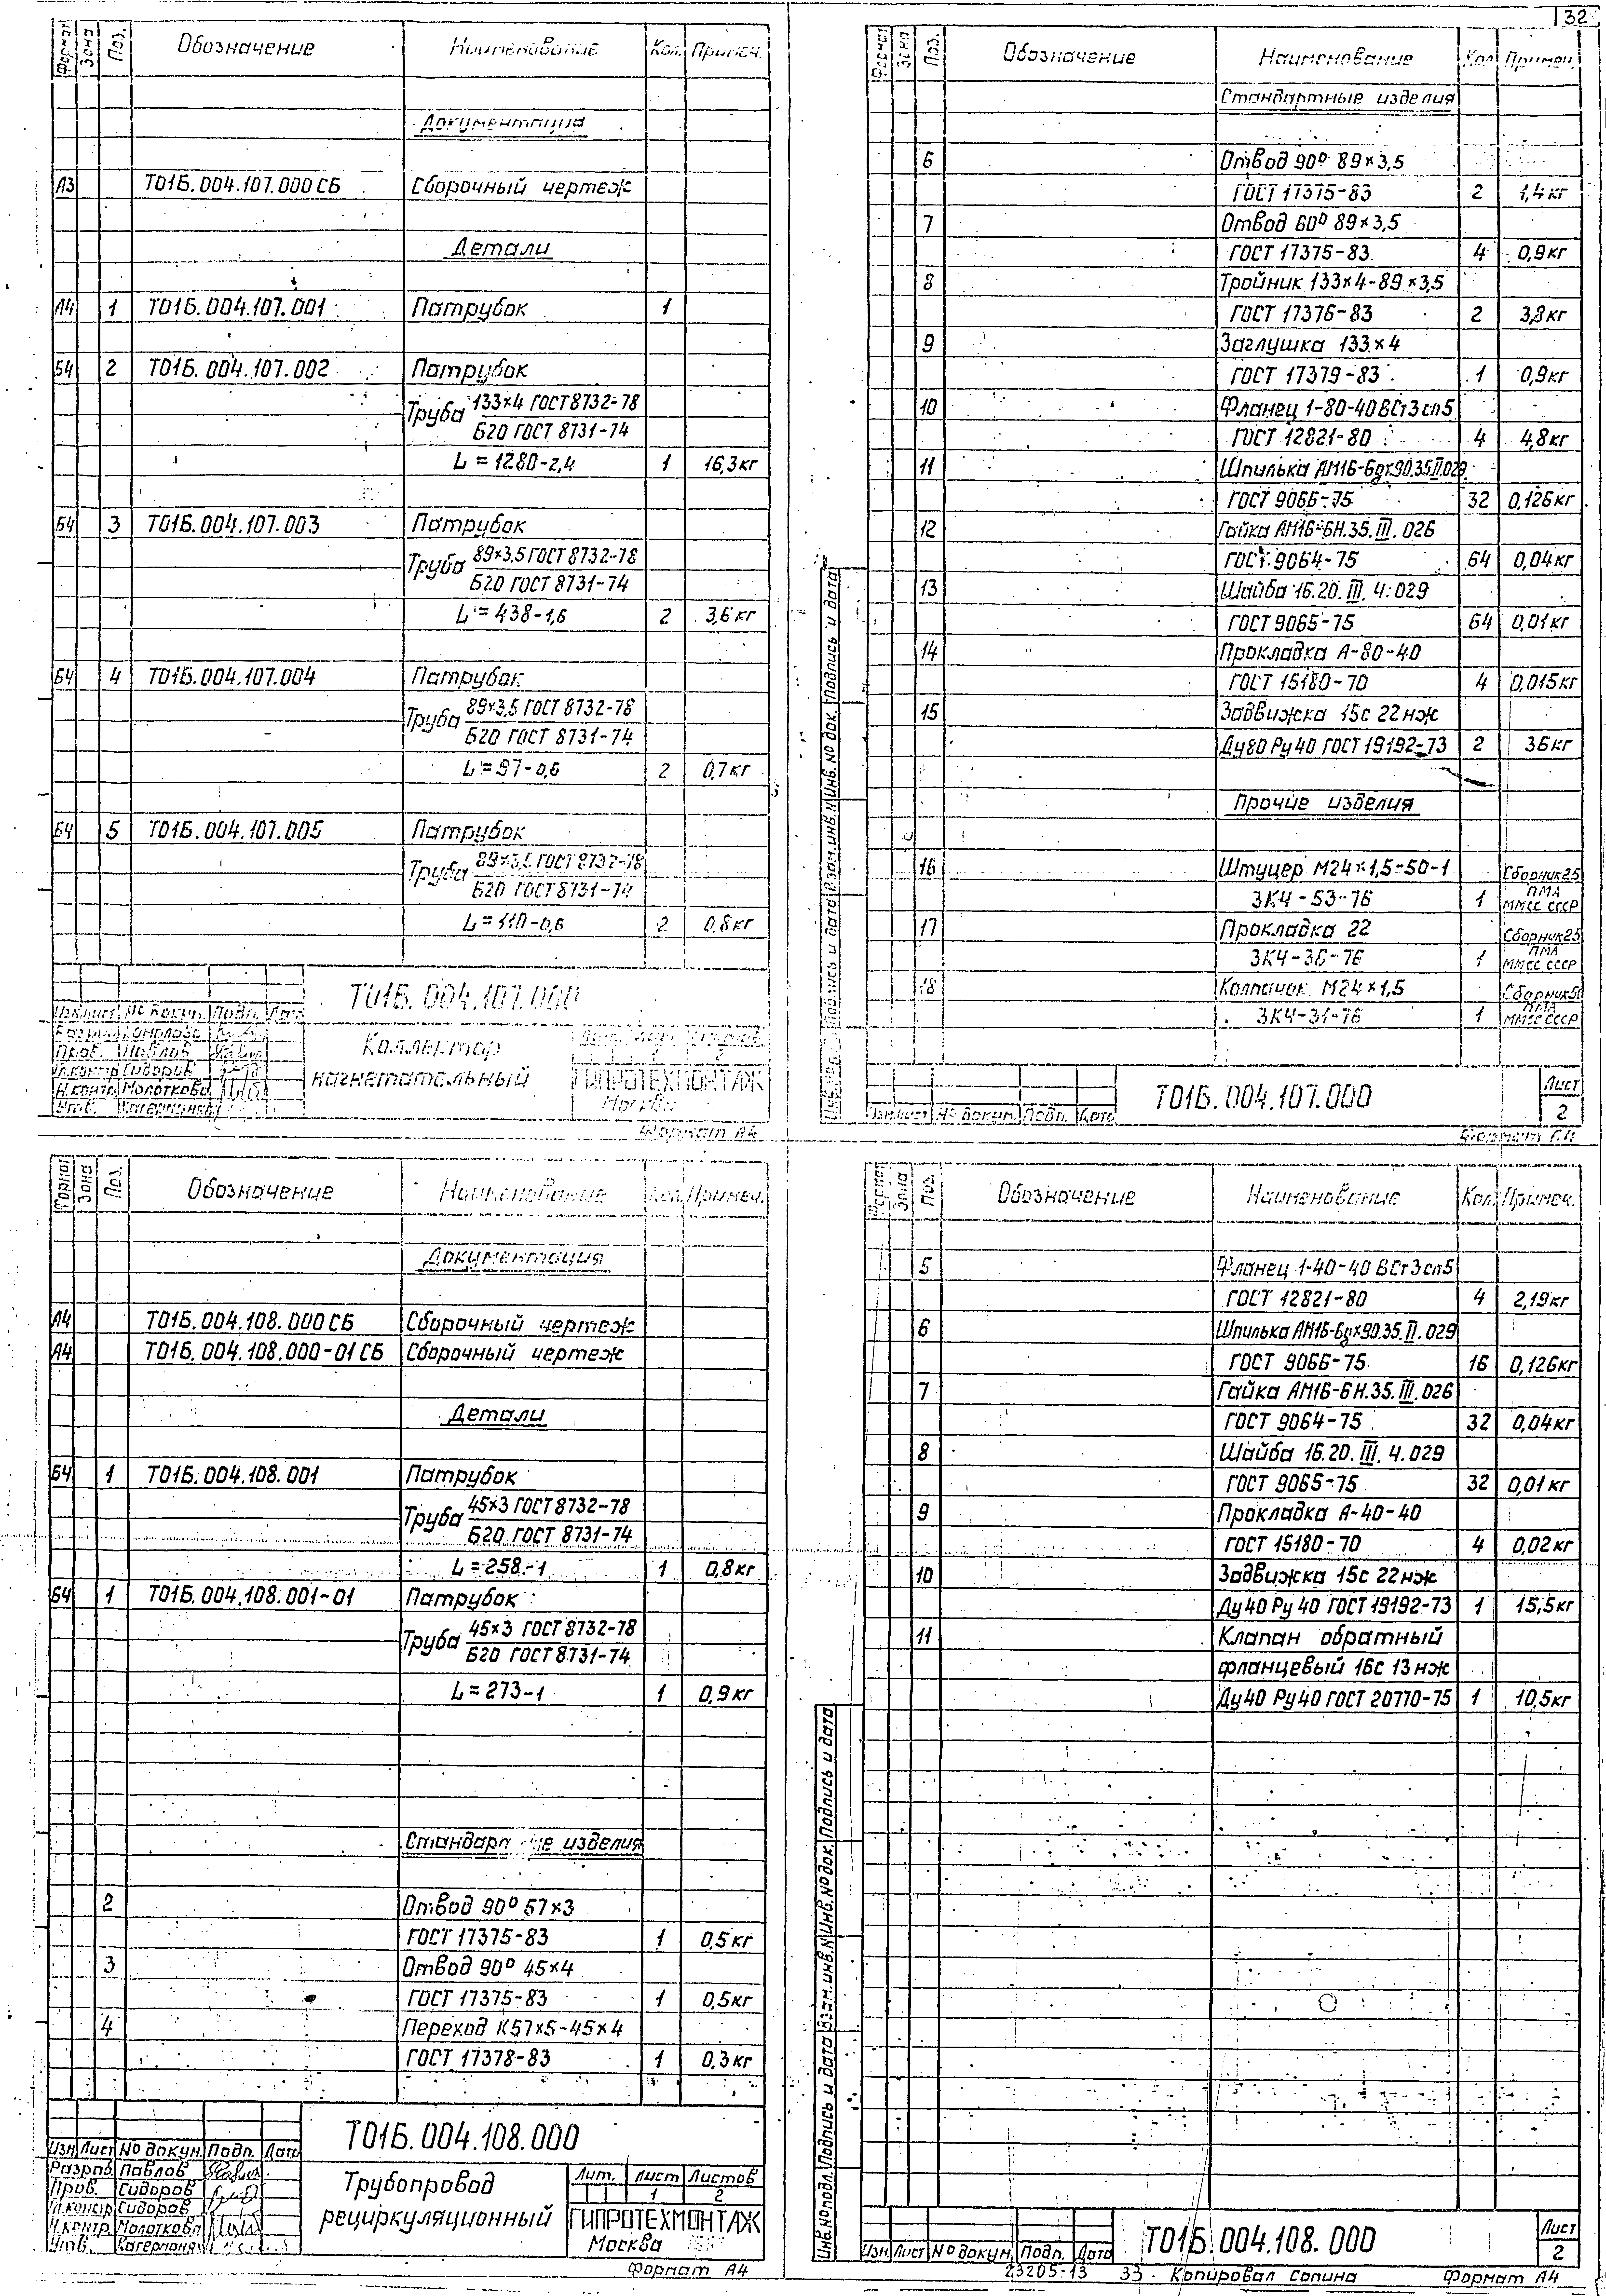 32
Формат Зона Поз. Обозначение Наименование Кол. Примеч.
Документация
А3 Т01Б.004.107.000 СБ Сборочный чертеж
Детали
А4 1 Т01Б.004.107.001 Патрубок 1
Б4 2 Т01Б.004.107.002 Патрубок
Труба 133×4 ГОСТ 8732-78
Б20 ГОСТ 8731-74
L = 1280-2,4 1 16,3 кг
Б4 3 Т01Б.004.107.003 Патрубок
Труба 89×3,5 ГОСТ 8732-78
Б20 ГОСТ 8731-74
L = 438-1,6 2 3,6 кг
Б4 4 Т01Б.004.107.004 Патрубок
Труба 89×3,5 ГОСТ 8732-78
Б20 ГОСТ 8731-74
L = 97-0,6 2 0,7 кг
Б4 5 Т01Б.004.107.005 Патрубок
Труба 89×3,5 ГОСТ 8732-78
Б20 ГОСТ 8731-74
L = 110-0,6 2 0,8 кг
Т01Б.004.107.000
Изм Лист № докум. Подп. Дата
Пров. Павлов
Гл.констр Сидоров
Н.контр. Молоткова
Утв.
Коллектор
нагнетательный
ГИПРОТЕХМОНТАЖ
Москва
Формат А4
Формат Зона Поз. Обозначение Наименование Кол. Примеч.
Стандартные изделия
6 Отвод 90° 89×3,5
ГОСТ 17375-83 2 1,4 кг
7 Отвод 60° 89×3,5
ГОСТ 17375-83 4 0,9 кг
8 Тройник 133×4-89×3,5
ГОСТ 17376-83 2 3,8 кг
9 Заглушка 133×4
ГОСТ 17379-83 1 0,9 кг
10 Фланец 1-80-40 ВСт3сп5
ГОСТ 12821-80 4 4,8 кг
11 Шпилька АМ16-6g×90.35.II.029
ГОСТ 9066-75 32 0,126 кг
12 Гайка АМ16-6Н.35.III.026
ГОСТ 9064-75 64 0,04 кг
13 Шайба 16.20.III.4.029
ГОСТ 9065-75 64 0,01 кг
14 Прокладка А-80-40
ГОСТ 15180-70 4 0,015 кг
15 Задвижка 15с 22нж
Ду80 Ру40 ГОСТ 19192-73 2 36 кг
Прочие изделия
16 Штуцер М24×1,5-50-1 Сборник 25
ЗК4-53-76 1 ПМА
ММСС СССР
17 Прокладка 22 Сборник 25
ЗК4-36-76 1 ПМА
ММСС СССР
18 Колпачок М24×1,5 Сборник 50
ЗК4-31-76 1 ПМА
ММСС СССР
Подпись и дата Взам.инв.№ Инв.№ док. Подпись и дата
Изм Лист № докум. Подп. Дата
Т01Б.004.107.000
Лист
2
Формат
Формат Зона Поз. Обозначение Наименование Кол. Примеч.
Документация
А4 Т01Б.004.108.000 СБ Сборочный чертеж
А4 Т01Б.004.108.000-01 СБ Сборочный чертеж
Детали
Б4 1 Т01Б.004.108.001 Патрубок
Труба 45×3 ГОСТ 8732-78
Б20 ГОСТ 8731-74
L = 258-1 1 0,8 кг
Б4 1 Т01Б.004.108.001-01 Патрубок
Труба 45×3 ГОСТ 8732-78
Б20 ГОСТ 8731-74
L = 273-1 1 0,9 кг
изделия
2 Отвод 90° 57×3
ГОСТ 17375-83 1 0,5 кг
3 Отвод 90° 45×4
ГОСТ 17375-83 1 0,5 кг
4 Переход К57×5-45×4
ГОСТ 17378-83 1 0,3 кг
Т01Б.004.108.000
Изм Лист № докум. Подп. Дата
Разраб. Павлов
Пров. Сидоров
Гл.констр Сидоров
Н.контр. Молоткова
Утв.
Трубопровод
рециркуляционный
Лит. Лист Листов
1 2
ГИПРОТЕХМОНТАЖ
Москва
Формат А4
Формат Зона Поз. Обозначение Наименование Кол. Примеч.
5 Фланец 1-40-40 ВСт3сп5
ГОСТ 12821-80 4 2,19 кг
6 Шпилька АМ16-6g×90.35.II.029
ГОСТ 9066-75 16 0,126 кг
7 Гайка АМ16-6Н.35.III.026
ГОСТ 9064-75 32 0,04 кг
8 Шайба 16.20.III.4.029
ГОСТ 9065-75 32 0,01 кг
9 Прокладка А-40-40
ГОСТ 15180-70 4 0,02 кг
10 Задвижка 15с 22нж
Ду40 Ру40 ГОСТ 19192-73 1 15,5 кг
11 Клапан обратный
фланцевый 16с 13нж
Ду40 Ру40 ГОСТ 20770-75 1 10,5 кг
Инв.№ подл. Подпись и дата Взам.инв.№ Инв.№ док. Подпись и дата
Изм Лист № докум. Подп. Дата
Т01Б.004.108.000
Лист
2
23205-13 33 Копировал Сопина Формат А4